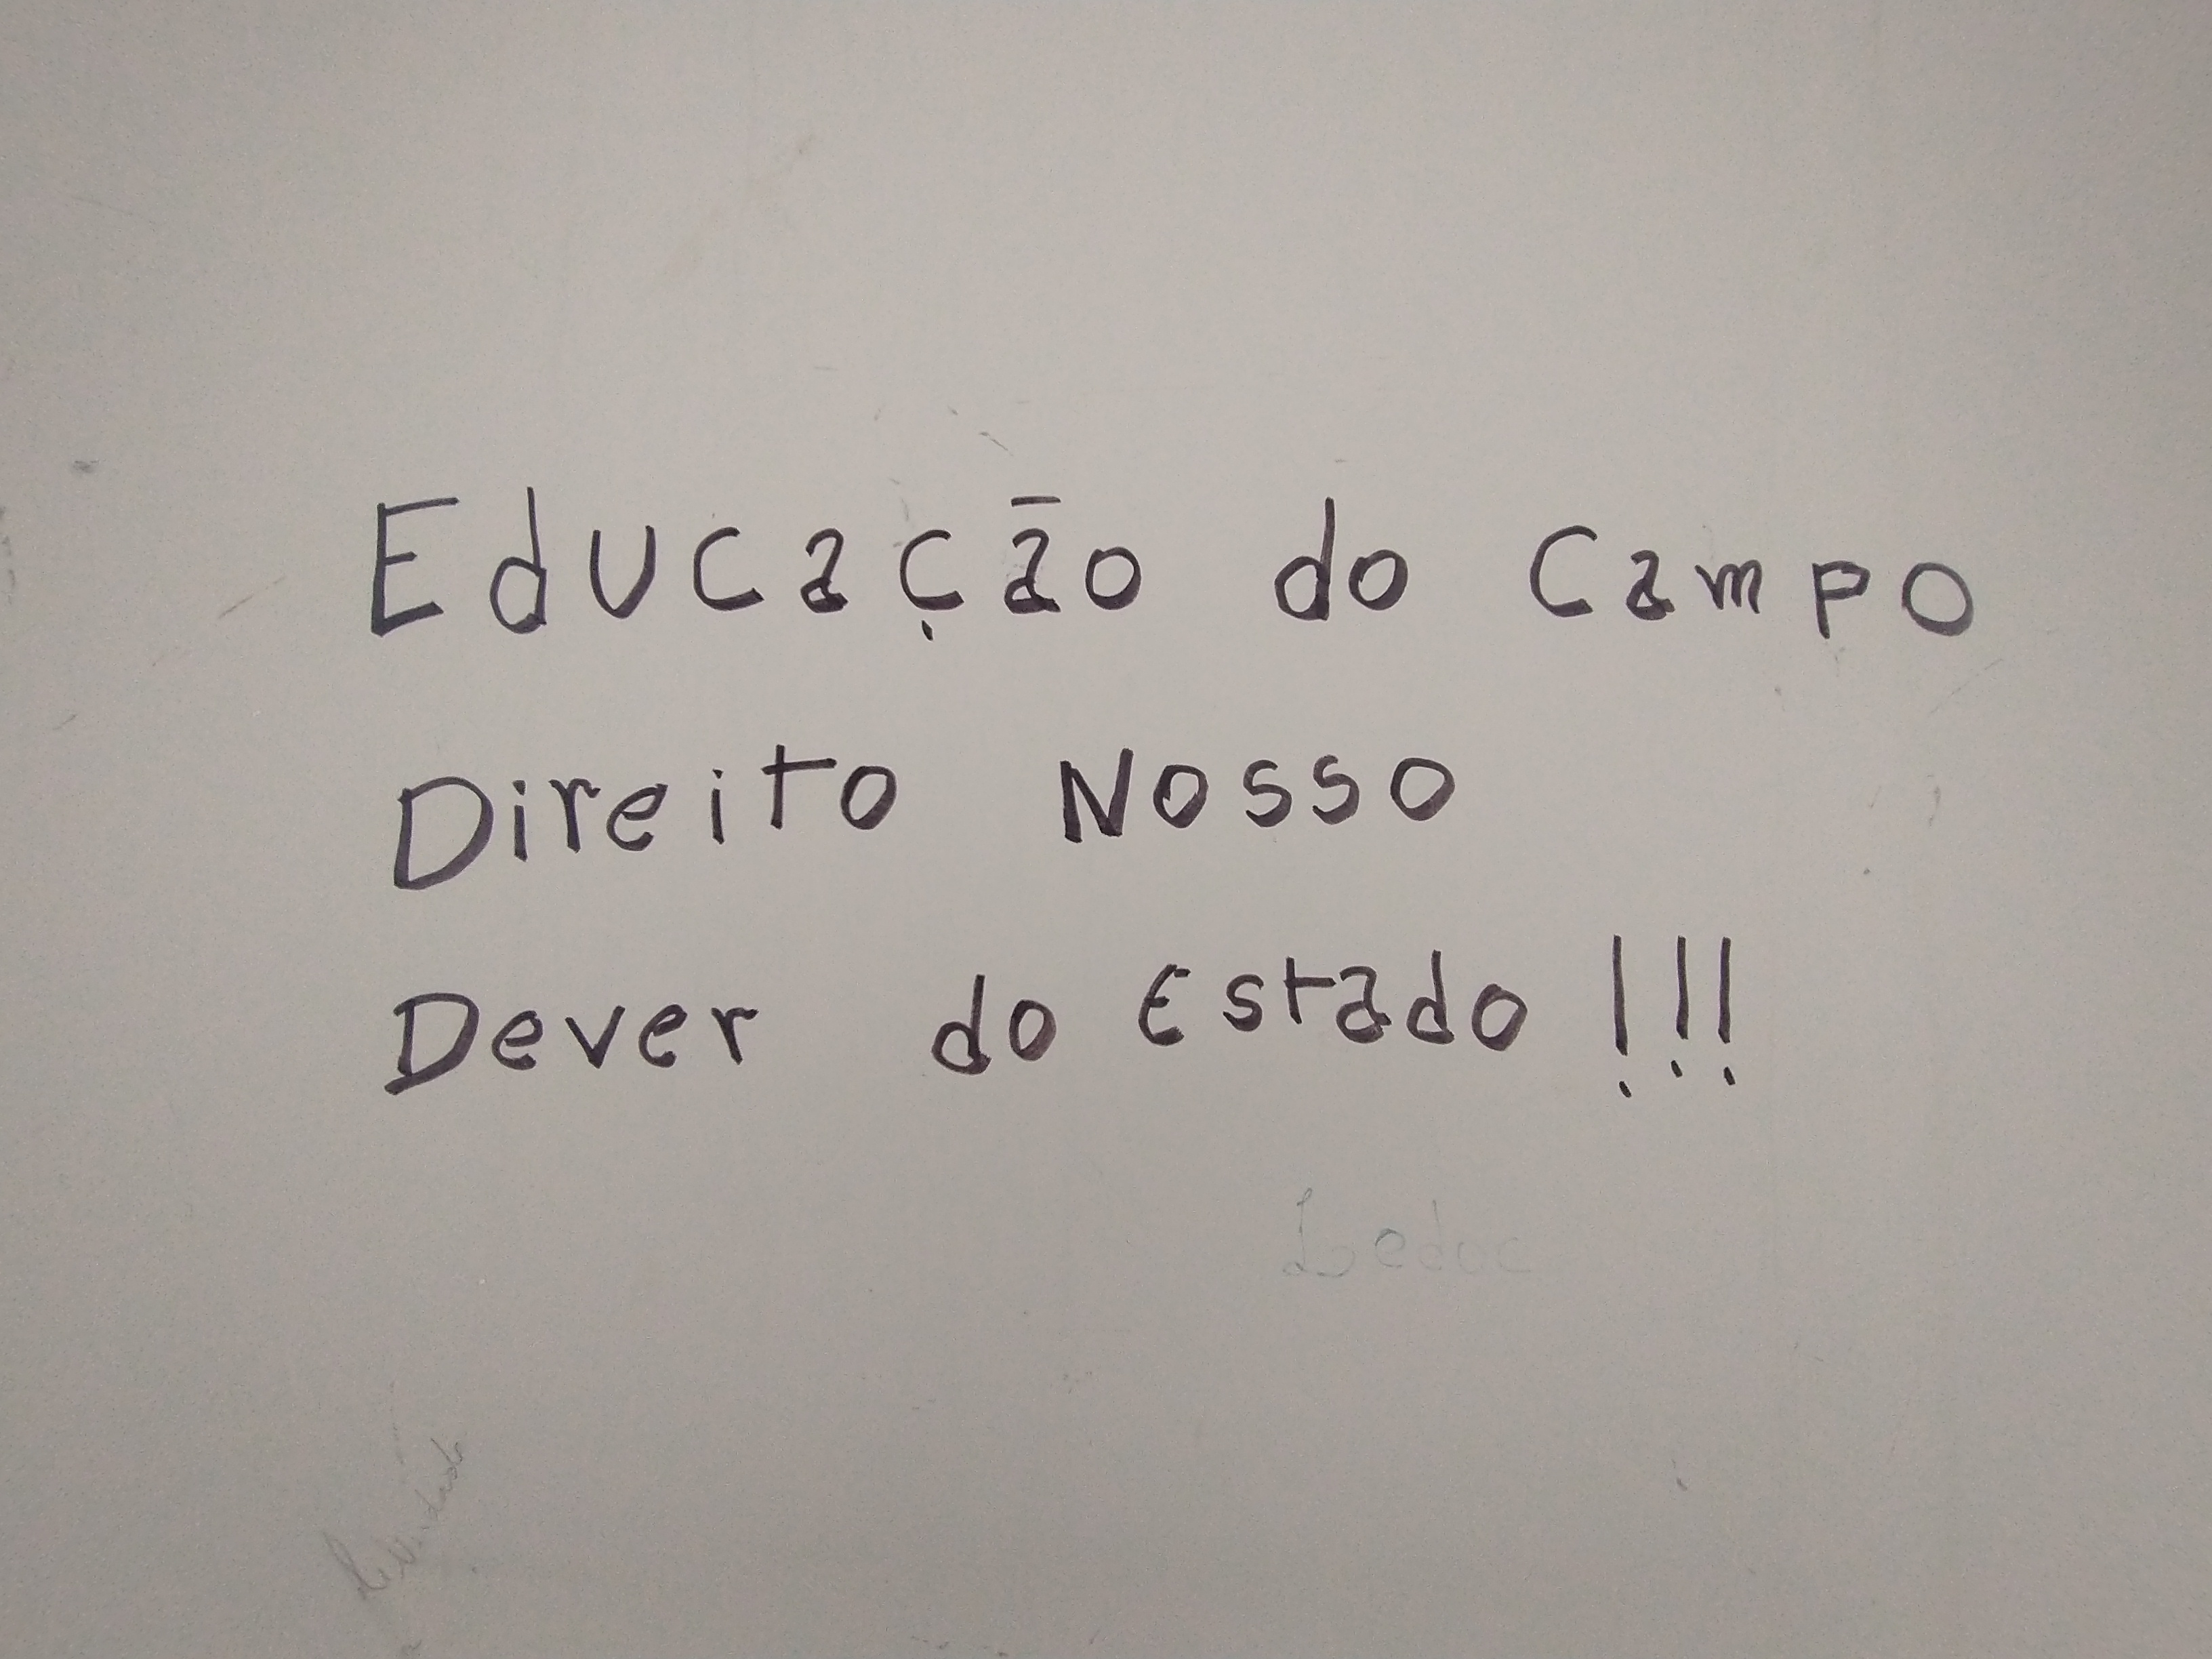 Educação do Campo
Direito Nosso
Dever do Estado!!!
Leduc